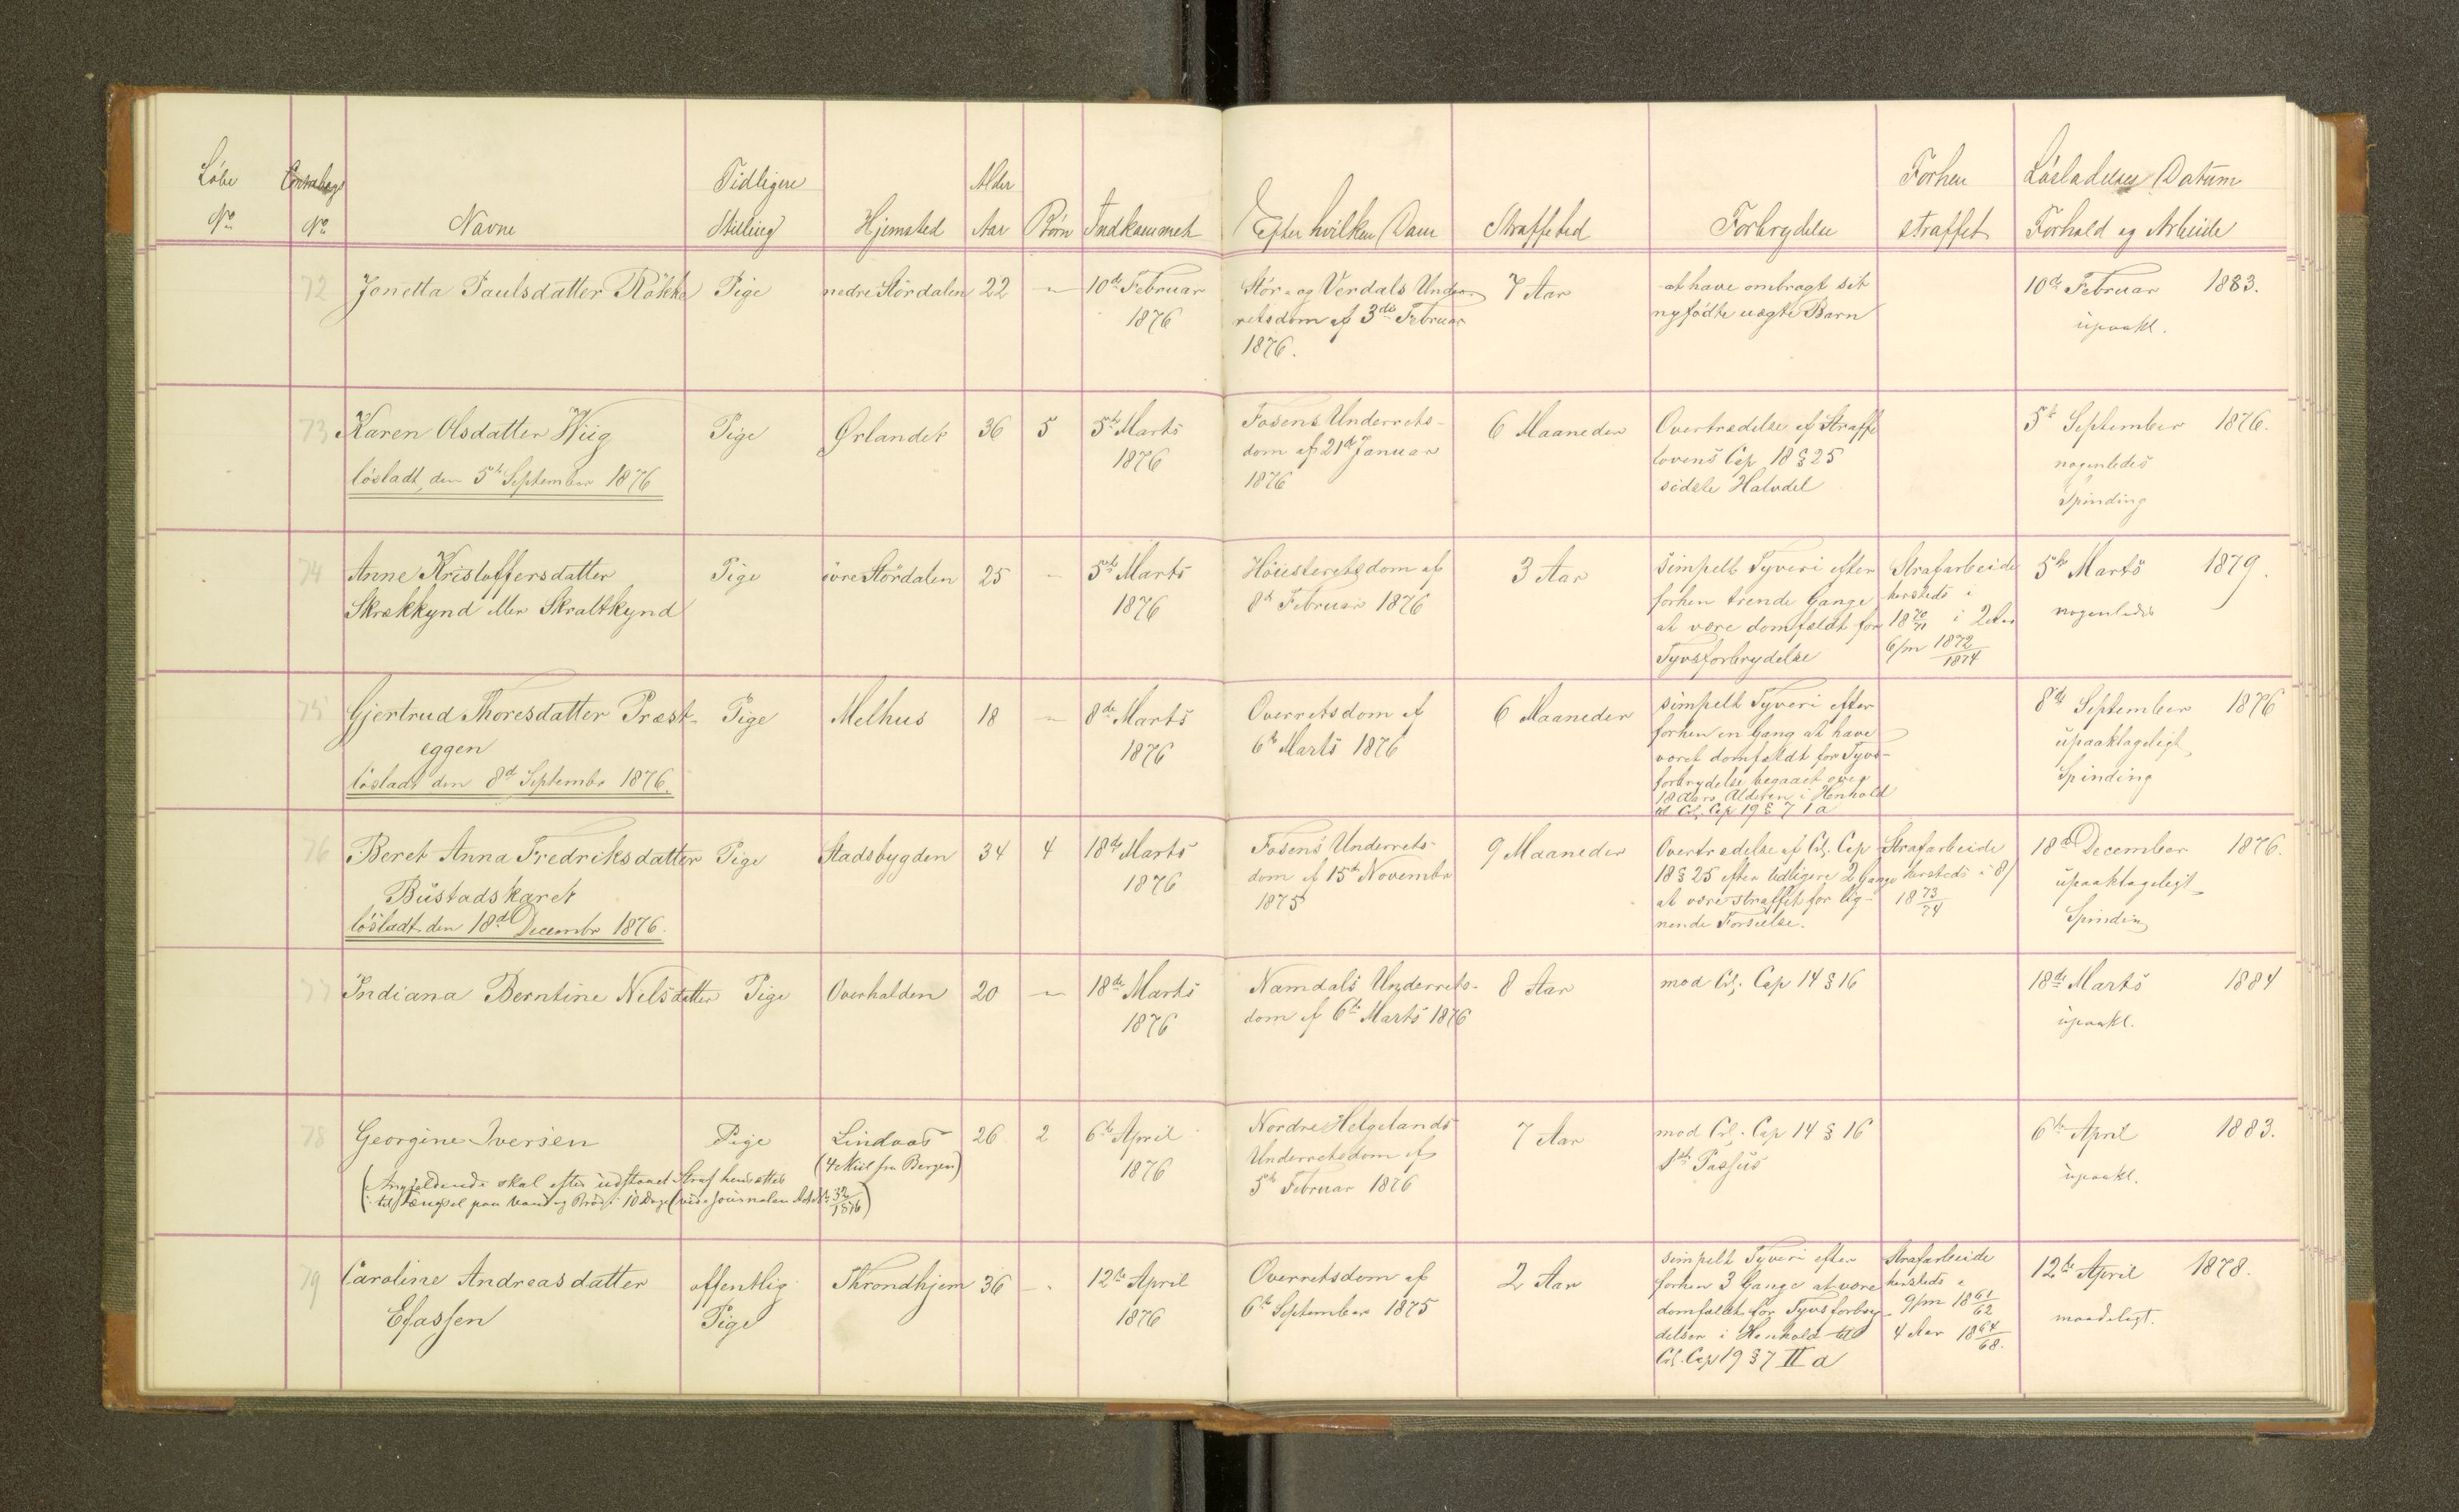 Løbe Tidligere Alder Forhen Løsladelses Datum
No No Navne Stilling Hjemsted Aar Børn Indkommet Efter hvilken Dom Straffetid Forbrydelse straffet Forhold og Arbeide
72 Jonetta Paulsdatter Røkke Pige nedre Stördalen 22 — 10de Februar Stör- og Verdals Under- 7 Aar at have ombragt sit 10de Februar 1883.
1876 retsdom af 3die Februar nyfødte uægte Barn upaakl.
1876.
73 Karen Olsdatter Wiig Pige Ørlandet 36 5 5te Marts Fosens Underrets- 6 Maaneder Overtrædelse af Straffe 5te September 1876.
løsladt den 5te September 1876 1876 dom af 21de Januar lovens Cap 18 § 25 nogenledes
1876 sidste Halvdel Spinding
74 Anne Kristoffersdatter Pige övre Stördalen 25 — 5te Marts Höiesteretsdom af 3 Aar simpelt Tyveri efter Strafarbeide 5te Marts 1879.
Skrækkynd eller Skraltkynd 1876 8de Februar 1876 forhen trende Gange hersteds i nogenledes
at være domfældt for 18 70/71 i 2 Aar
Tyvsforbrydelse 6/m 1872/1874
75 Gjertrud Thoresdatter Præst- Pige Melhus 18 — 8de Marts Overretsdom af 6 Maaneder simpelt Tyveri efter 8de September 1876
eggen 1876 6te Marts 1876 forhen en Gang at have upaaklageligt
løsladt den 8de Septembr 1876. været domfældt for Tyvs- Spinding
forbrydelse begaaet over
18 Aars Alderen i Henhold
til Crl. Cap 19 § 7 1 a
76 Beret Anna Fredriksdatter Pige Stadsbygden 34 4 18de Marts Fosens Underrets- 9 Maaneder Overtrædelse af Crl. Cap Strafarbeide 18de December 1876.
Bustadskaret 1876 dom af 15de Novembr 18 § 25 efter tidligere 2 Gange hersteds i 8/ upaaklageligt
løsladt den 18de Decembr 1876. 1875 at være straffet for lig- 18 73/74 Spinding
nende Forseelse.
77 Indiana Berntine Nilsdatter Pige Overhalden 20 — 18de Marts Namdals Underrets- 8 Aar mod Crl. Cap 14 § 16 18de Marts 1884
1876 dom af 6te Marts 1876 upaakl.
78 Georgine Iversen Pige Lindaas 26 2 6te April Nordre Helgelands 7 Aar mod Crl. Cap 14 § 16 6te April 1883.
(Angjeldende skal efter udstaaet Straf hensættes (4 Miil fra Bergen) 1876 Underretsdom af 1ste Passus upaakl.
til Fængsel paa Vand og Brød i 10 Dage (vide Journalen 32/1876) 5te Februar 1876
79 Caroline Andreasdatter offentlig Throndhjem 36 — 12te April Overretsdom af 2 Aar simpelt Tyveri efter Strafarbeide 12te April 1878.
Efassen Pige 1876 6te September 1875 forhen 3 Gange at være hersteds i maadeligt.
domfældt for Tyvsforbry- 9/m 18 61/62
delser i Henhold til 4 Aar 18 64/68.
Crl. Cap 19 § 7 II a